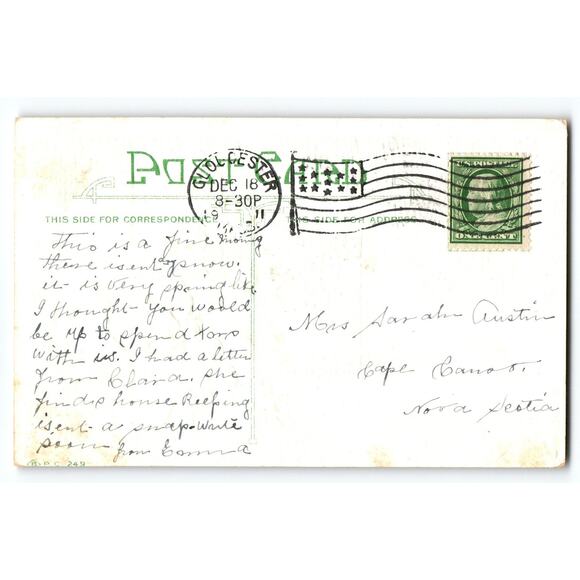 POST CARD
GLOUCESTER
DEC 18
8-30P
1911
U.S. POSTAGE
THIS SIDE FOR CORRESPONDENCE
THIS SIDE FOR ADDRESS
This is a fine
there isent snow.
it is very spring like
I thought you would
be up to spend Xms
with us. I had a letter
from Clara. she
finds house Keeping
isent a snap. write
soon from Emma
Mrs Sarah Austin
Cape Canso.
Nova Scotia
B.P.C. 249